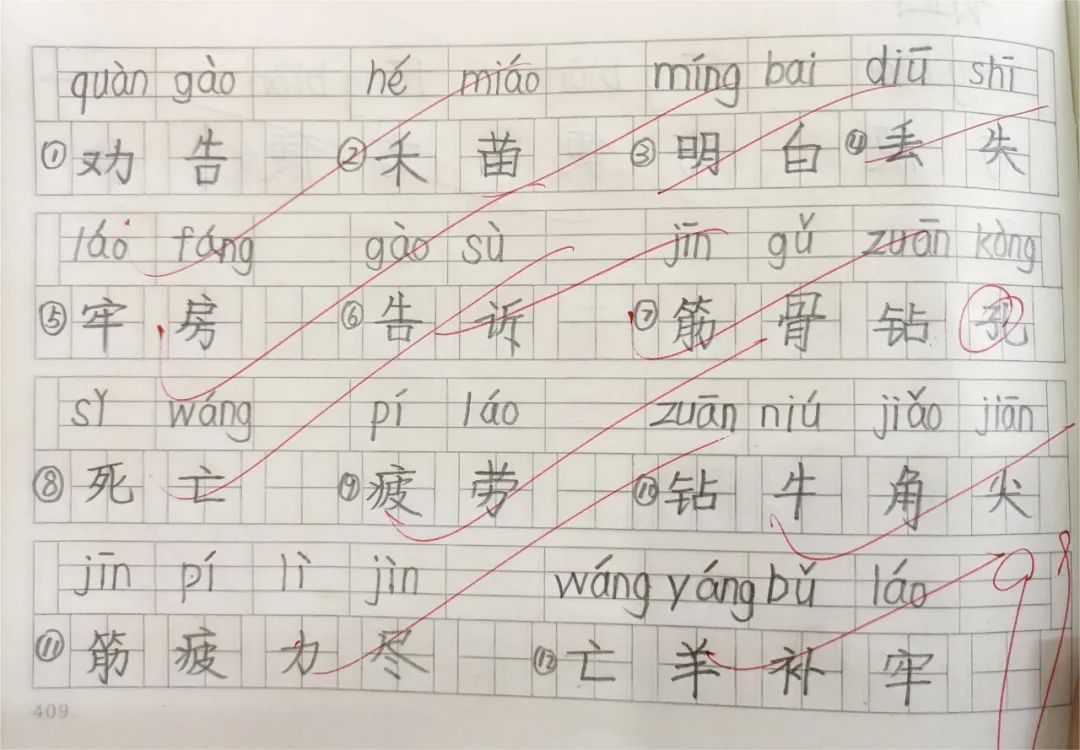 quàn gào hé miáo míng bai diū shī
①劝告 ②禾苗 ③明白 ④丢失
láo fáng gào sù jīn gǔ zuān kòng
⑤牢房 ⑥告诉 ⑦筋骨 钻孔
sǐ wáng pí láo zuān niú jiǎo jiān
⑧死亡 ⑨疲劳 ⑩钻牛角尖
jīn pí lì jìn wáng yáng bǔ láo
⑪筋疲力尽 ⑫亡羊补牢
98
409